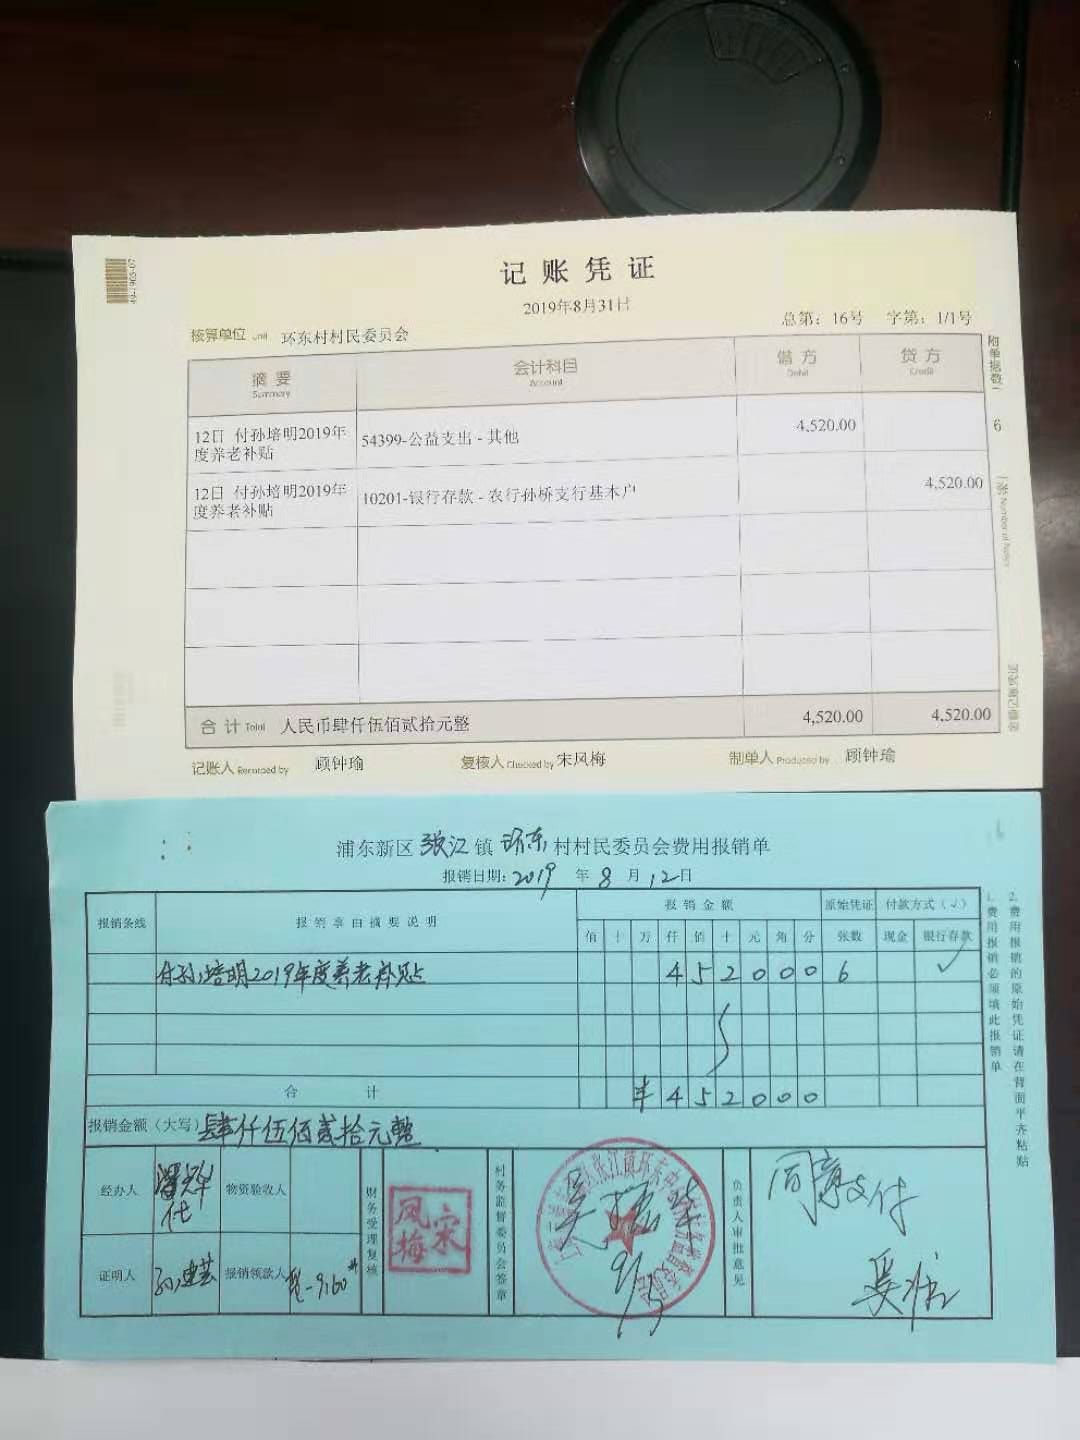 记账凭证
2019年8月31日
核算单位 Unit 环东村村民委员会 总第：16号 字第：1/1号
摘要 Summary 会计科目 Account 借方 Debit 贷方 Credit
附单据数 6 张 Number of
12日 付孙培明2019年度养老补贴 54399-公益支出 - 其他 4,520.00
12日 付孙培明2019年度养老补贴 10201-银行存款 - 农行孙桥支行基本户 4,520.00
合计 Total 人民币肆仟伍佰贰拾元整 4,520.00 4,520.00
记账人 Recorded by 顾钟瑜 复核人 Checked by 宋风梅 制单人 Produced by 顾钟瑜
浦东新区张江镇环东村村民委员会费用报销单
报销日期：2019年8月12日
报销条线 报销事由摘要说明 报销金额 原始凭证 付款方式（√）
佰 十 万 仟 佰 十 元 角 分 张数 现金 银行存款
付孙培明2019年度养老补贴 4 5 2 0 0 0 6 √
合计 ¥ 4 5 2 0 0 0
报销金额（大写）肆仟伍佰贰拾元整
经办人 物资验收人 财务受理复核 宋凤梅 村务监督委员会签章 负责人审批意见 同意支付
证明人 报销领款人
1.费用报销必须填此报销单
2.费用报销的原始凭证请在背面平齐粘贴